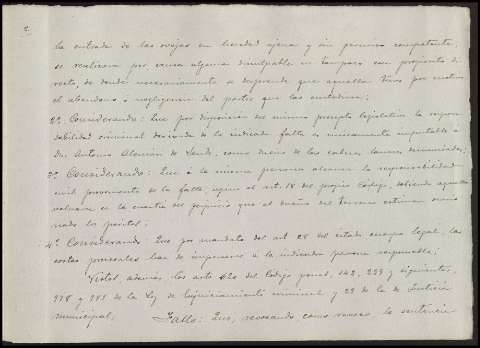 la entrada de las ovejas en heredad ajena y sin permiso competente,
se realizara por causa alguna disculpable ni tampoco con propósito di-
recto, de donde necesariamente se desprende que aquella tuvo por motivo
el abandono ó negligencia del pastor que las custodiara;
2º Considerando: Que por disposición del mismo precepto legislativo la respon-
sabilidad criminal derivada de la indicada falta es únicamente imputable á
Dn. Antonio de como dueño de las cabezas lanares denunciadas;
3º Considerando: Que á la misma persona alcanza la responsabilidad
civil proveniente de la falta, según el art. 18 del propio Código, debiendo aquella
en la cuantía del perjuicio que al dueño del terreno estiman
los peritos;
4º Considerando: Que por mandato del art 28 del citado cuerpo legal, las
costas procesales han de imponerse á la indicada persona responsable;
Vistos, además, los arts 620 del Código penal, 142, 239 y siguientes,
978 y 981 de la Ley de Enjuiciamiento criminal y 29 de la de Justicia
municipal,
Fallo: Que, revocando como revoco la sentencia